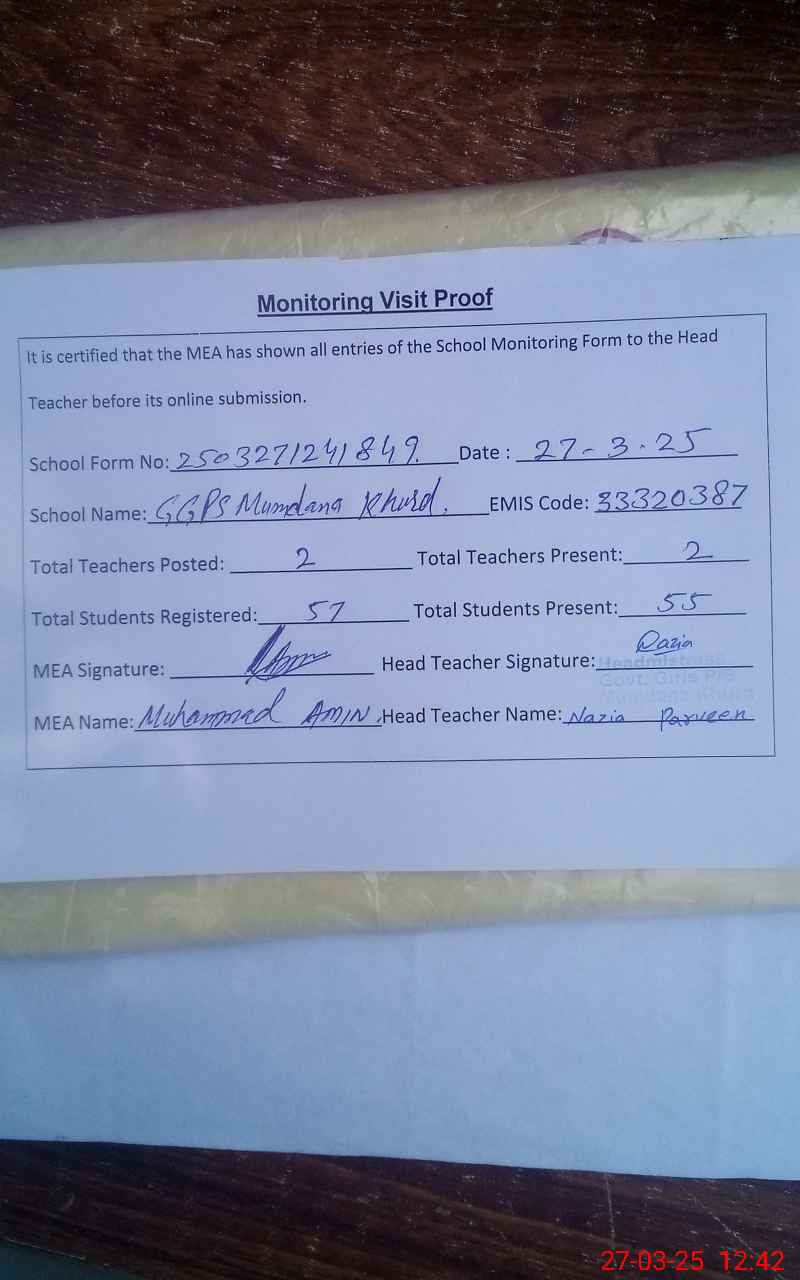 Monitoring Visit Proof
It is certified that the MEA has shown all entries of the School Monitoring Form to the Head
Teacher before its online submission.
School Form No: 2503271241849 Date : 27-3-25
School Name: GGPS Mumdana Khurd. EMIS Code: 33320387
Total Teachers Posted: 2 Total Teachers Present: 2
Total Students Registered: 57 Total Students Present: 55
MEA Signature: Head Teacher Signature: Nazia
Headmistress
Govt. Girls P/S
Mumdana Khurd
MEA Name: Muhammad AMIN. Head Teacher Name: Nazia Parveen
27-03-25 12:42